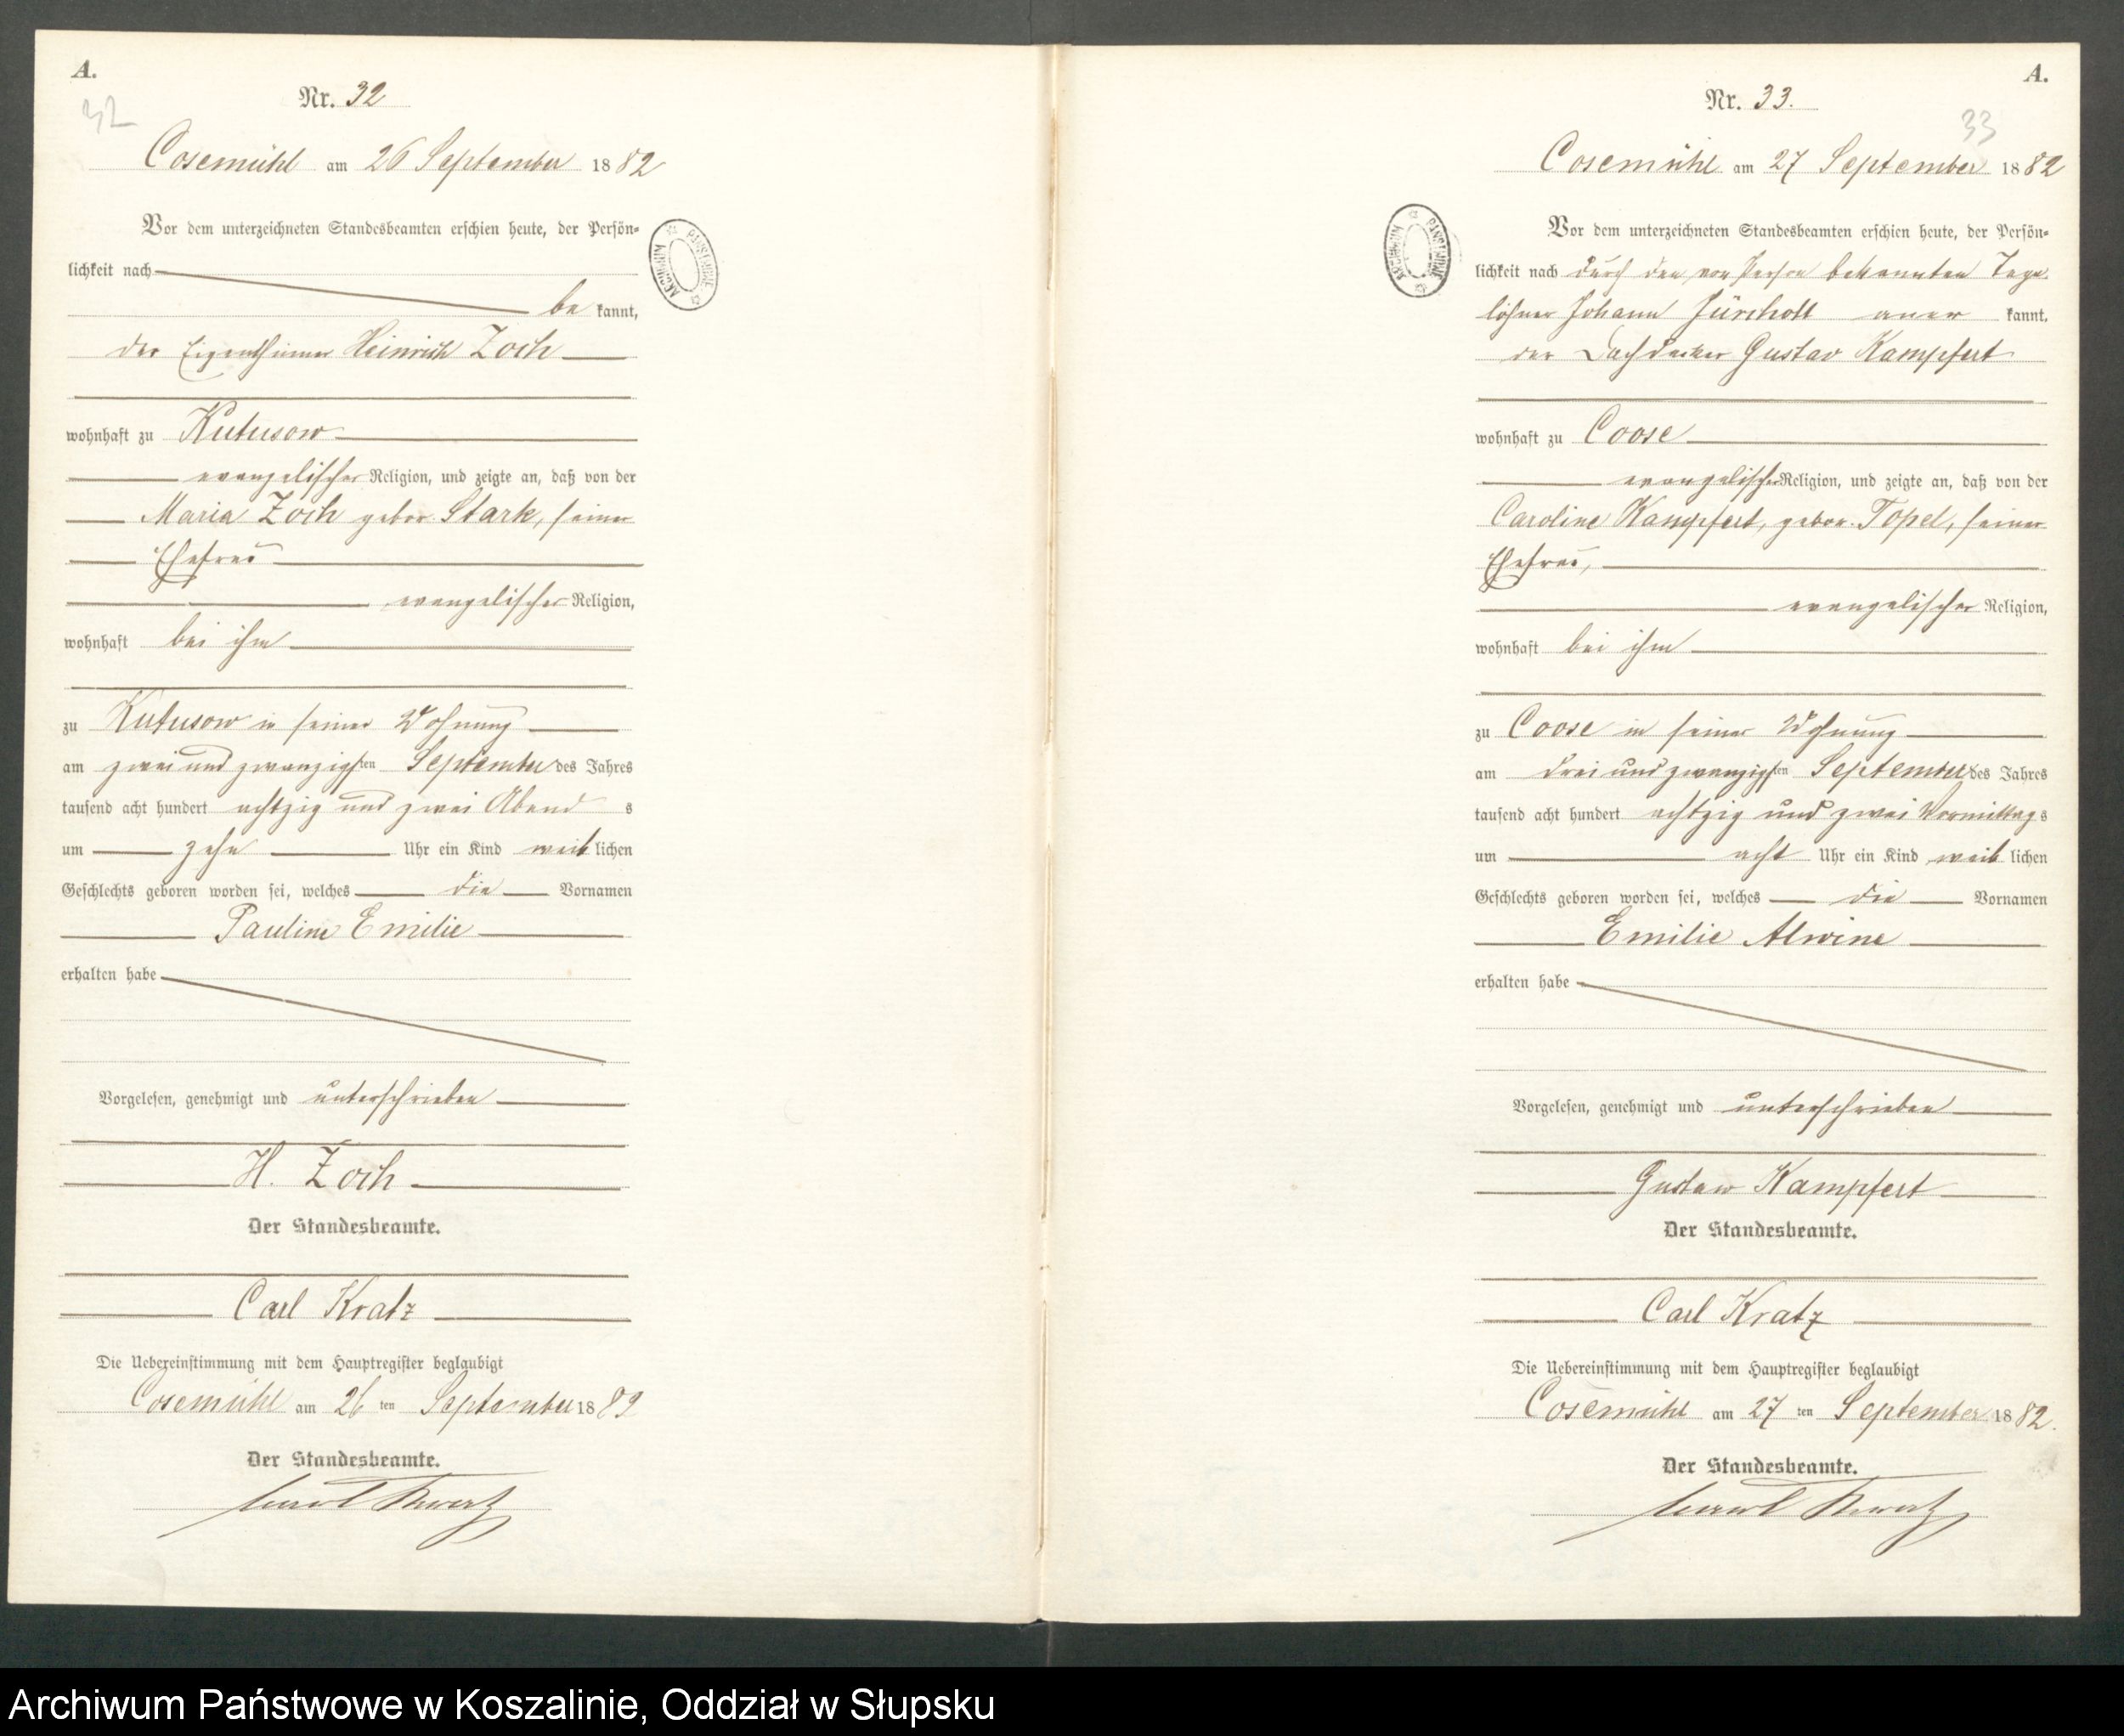 A.
32
Nr. 32
Cosemühl am 26 September 1882
Vor dem unterzeichneten Standesbeamten erschien heute, der Persön=
lichkeit nach
be kannt,
der Eigenthümer Heinrich Zoch
wohnhaft zu Kutusow
evangelischer Religion, und zeigte an, daß von der
Maria Zoch gebor. Stark, seiner
Ehefrau
evangelischer Religion,
wohnhaft bei ihm
zu Kutusow in seiner Wohnung
am zwei und zwanzigsten September des Jahres
tausend acht hundert achtzig und zwei Abend s
um zehn Uhr ein Kind weib lichen
Geschlechts geboren worden sei, welches die Vornamen
Pauline Emilie
erhalten habe
Vorgelesen, genehmigt und unterschrieben
H. Zoch
Der Standesbeamte.
Carl Kratz
Die Uebereinstimmung mit dem Hauptregister beglaubigt
Cosemühl am 26 ten September 1882
Der Standesbeamte.
Carl Kratz
ARCHIWUM PAŃSTWOWE
A.
33
Nr. 33.
Cosemühl am 27 September 1882
Vor dem unterzeichneten Standesbeamten erschien heute, der Persön=
lichkeit nach durch den von Person bekannten Tage
löhner Johann aner kannt,
der Dachdecker Gustav Kampfert
wohnhaft zu Coose
evangelischer Religion, und zeigte an, daß von der
Caroline Kampfert, gebor. Topel, seiner
Ehefrau,
evangelischer Religion,
wohnhaft bei ihm
zu Coose in seiner Wohnung
am drei und zwanzigsten September des Jahres
tausend acht hundert achtzig und zwei Vormittag s
um acht Uhr ein Kind weib lichen
Geschlechts geboren worden sei, welches die Vornamen
Emilie Alwine
erhalten habe
Vorgelesen, genehmigt und unterschrieben
Gustaw Kampfert
Der Standesbeamte.
Carl Kratz
Die Uebereinstimmung mit dem Hauptregister beglaubigt
Cosemühl am 27 ten September 1882.
Der Standesbeamte.
Carl Kratz
ARCHIWUM PAŃSTWOWE
Archiwum Państwowe w Koszalinie, Oddział w Słupsku